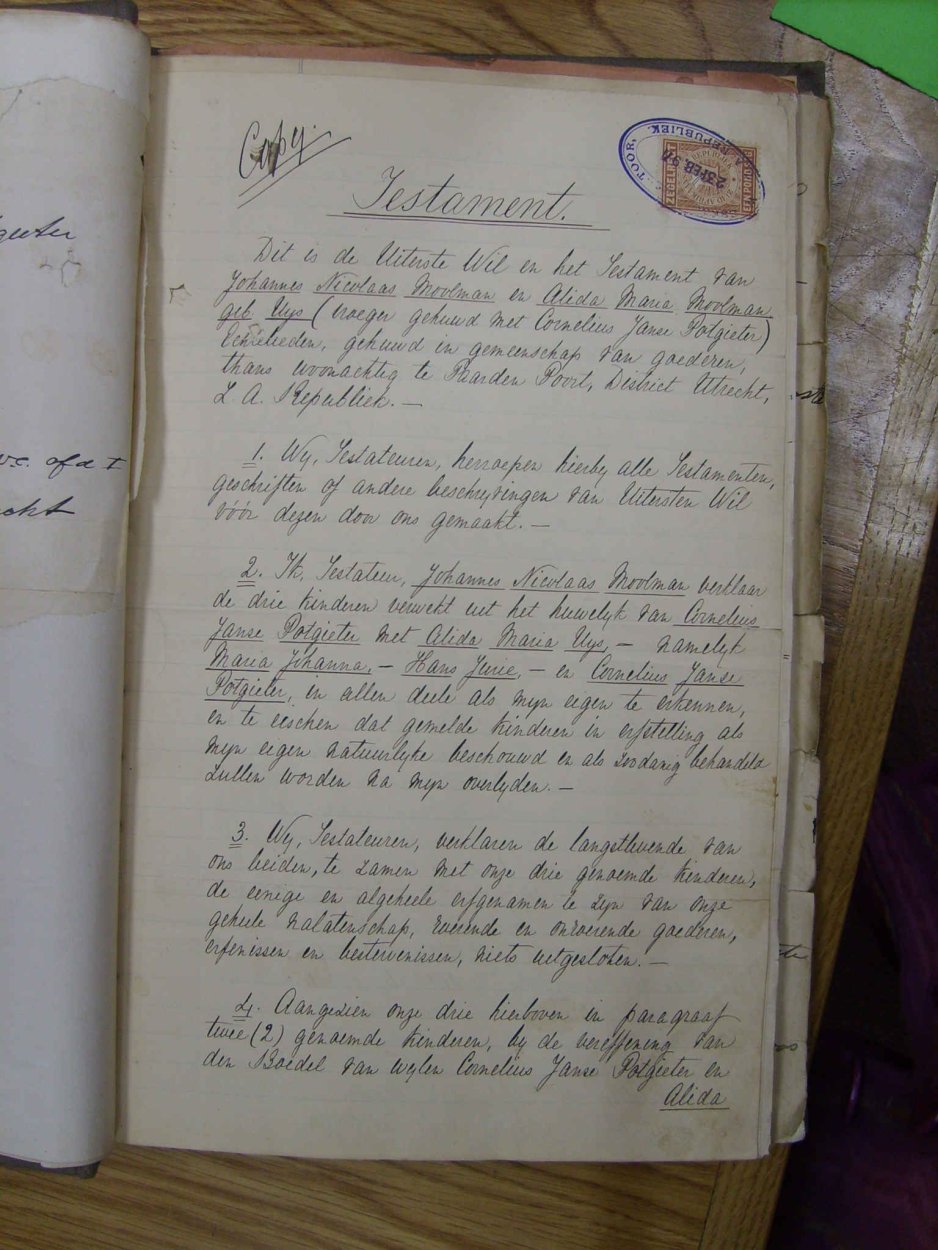 Copy
Testament.
TOOR,
REPUBLIEK.
23 FEB. 97
ZEGELRECHT
EEN POND
Dit is de Uiterste Wil en het Testament van
Johannes Nicolaas Moolman en Alida Maria Moolman
geb. Uys (vroeger gehuwd met Cornelius Janse Potgieter)
Echtelieden, gehuwd in gemeenschap van goederen,
thans woonachtig te Paarden Poort, District Utrecht,
Z. A. Republiek. —
1. Wy, Testateuren, herroepen hierby alle Testamenten,
geschriften of andere beschryvingen van Uitersten Wil
vóór dezen door ons gemaakt. —
2. Ik, Testateur, Johannes Nicolaas Moolman verklaar
de drie kinderen verwekt uit het huwelyk van Cornelius
Janse Potgieter met Alida Maria Uys, — namelyk
Maria Johanna, — Hans Jurie, — en Cornelius Janse
Potgieter, in allen deele als myn eigen te erkennen,
en te eeschen dat gemelde kinderen in erfstelling als
myn eigen natuurlyke beschouwd en als zoodanig behandeld
zullen worden na myn overlyden. —
3. Wy, Testateuren, verklaren de langstlevende van
ons beiden, te zamen met onze drie genoemde kinderen,
de eenige en algeheele erfgenamen te zyn van onze
geheele nalatenschap, roerende en onroerende goederen,
erfenissen en besterfenissen, niets uitgesloten. —
4. Aangezien onze drie hierboven in paragraaf
twee (2) genoemde kinderen, by de vereffening van
den Boedel van wylen Cornelius Janse Potgieter en
Alida